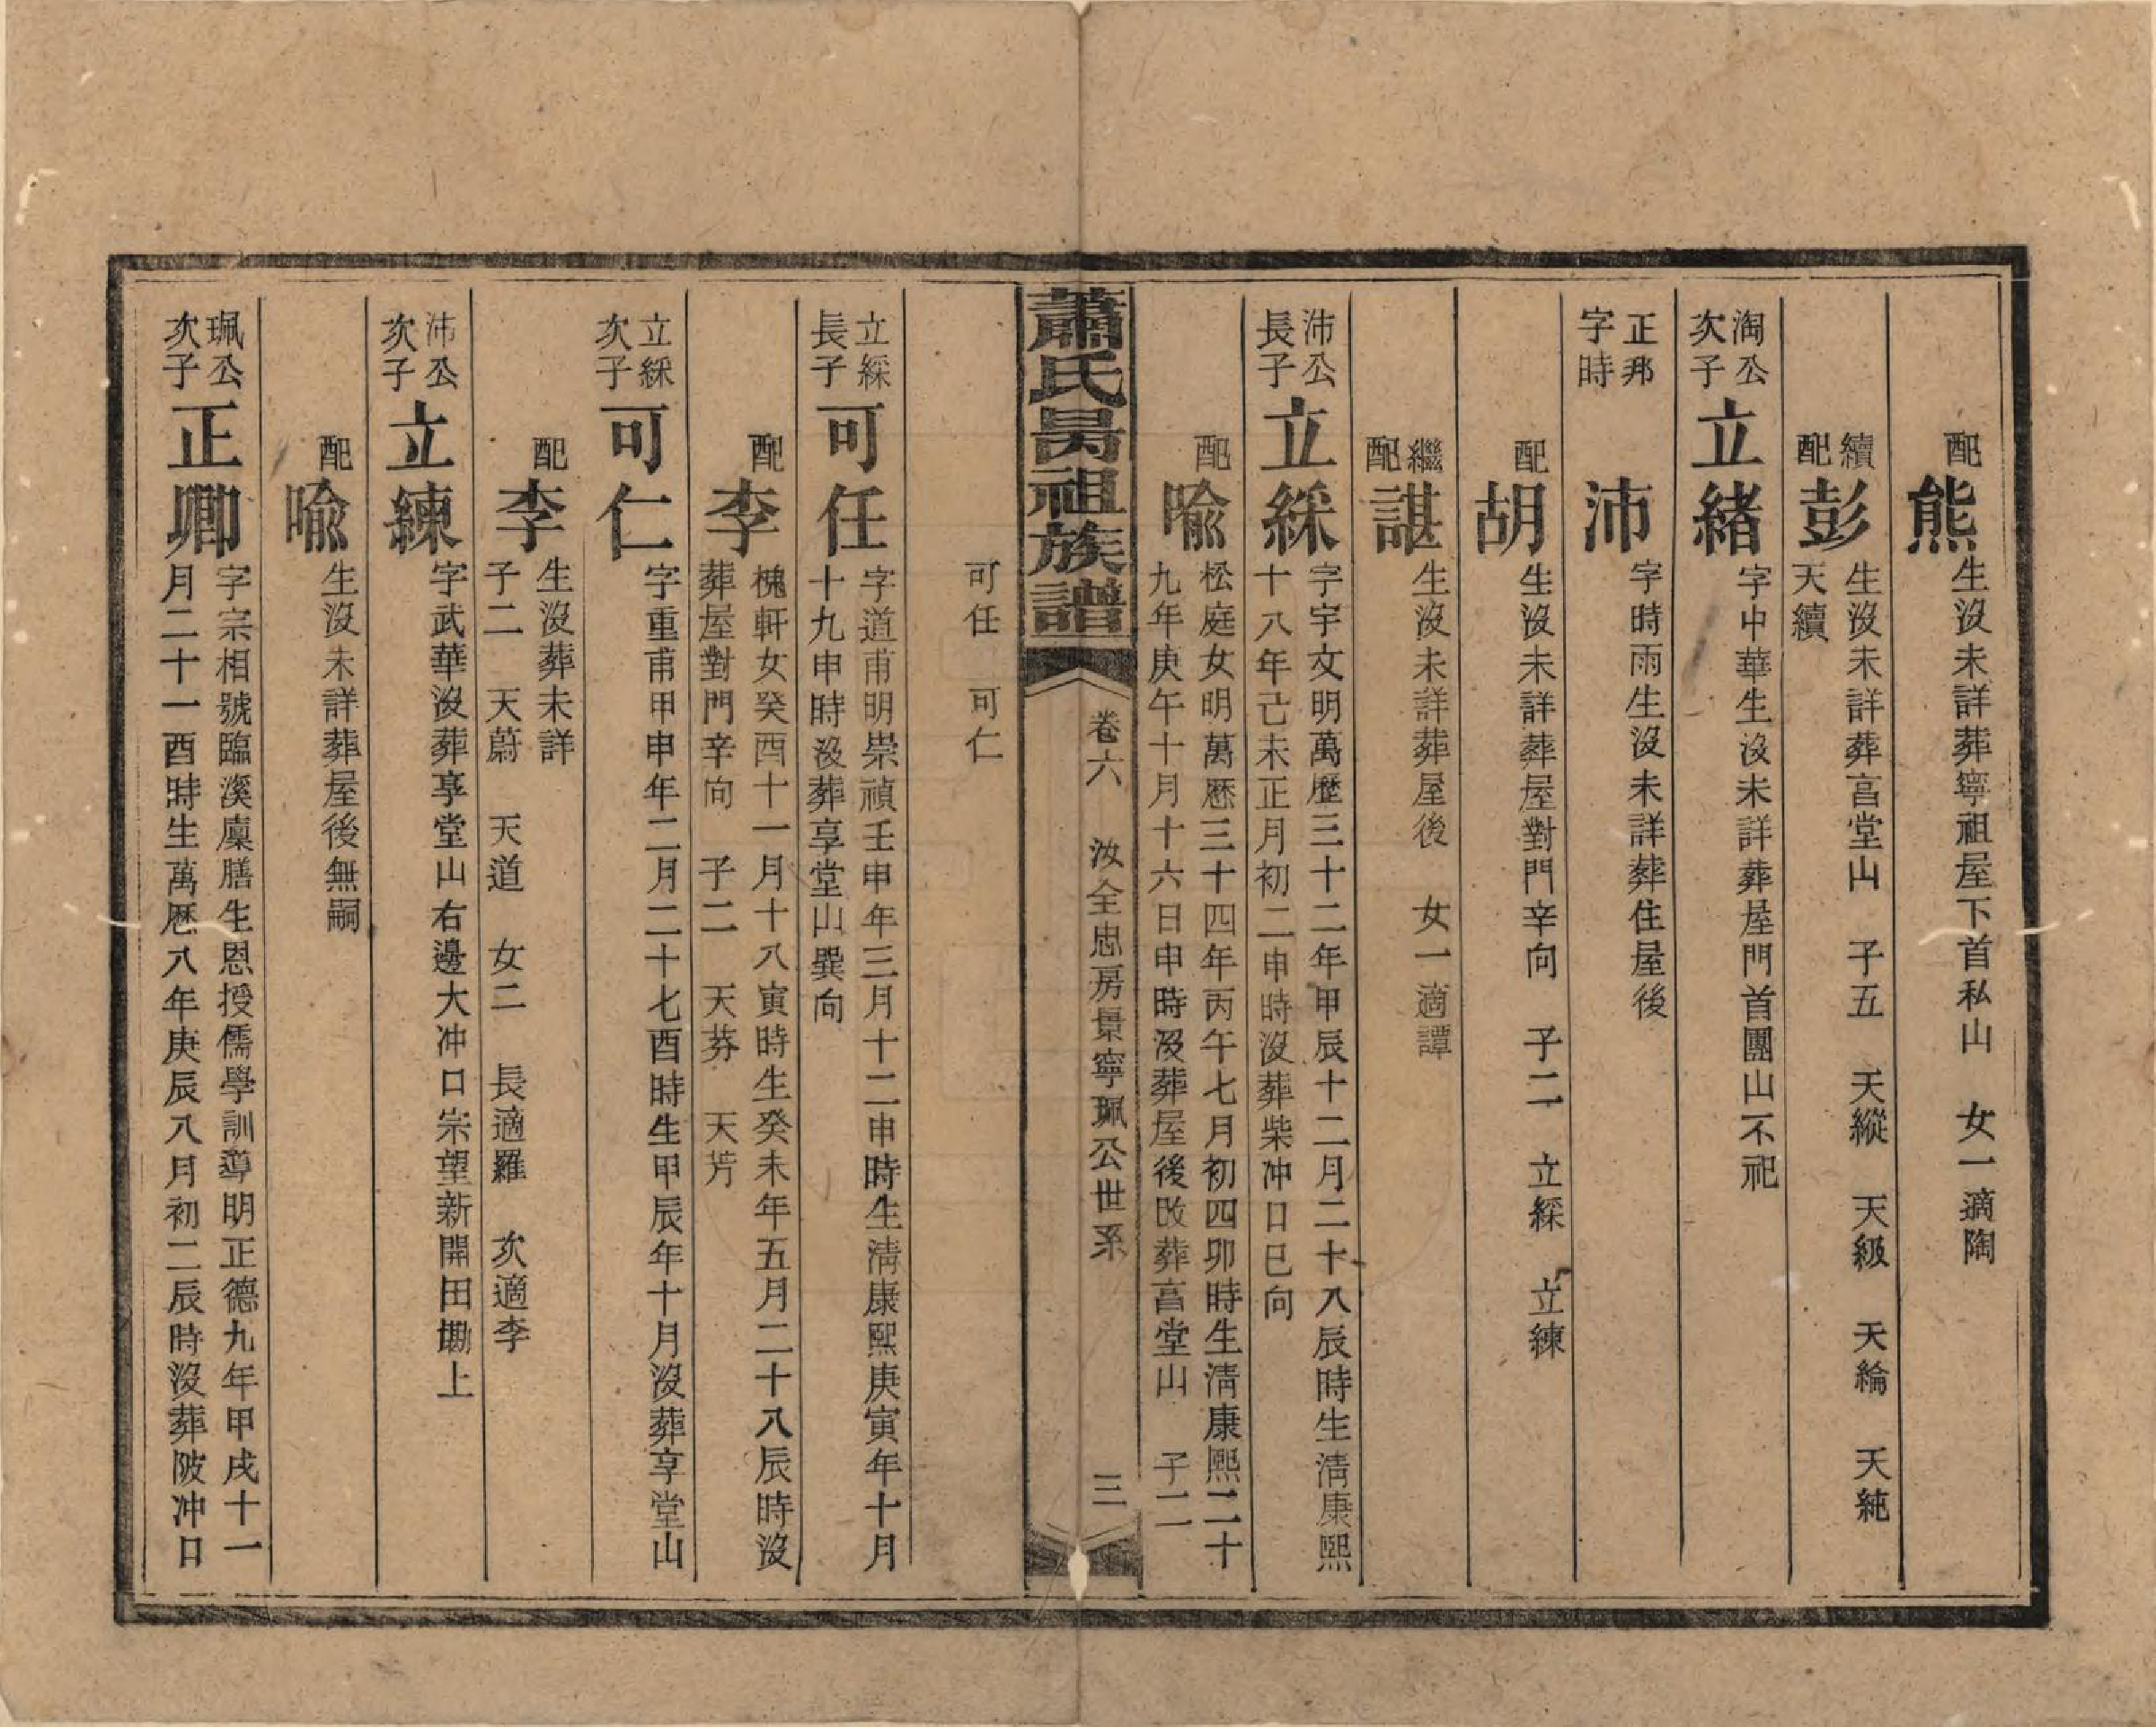 配
熊
生沒未詳葬寧祖屋下首私山　女一適陶
續
配
彭
生沒未詳葬富堂山　子五　天縱　天級　天綸　天純
天續
淘公
次子
立緒
字中華生沒未詳葬屋門首團山不祀
正邦
字時
沛
字時雨生沒未詳葬住屋後
配
胡
生沒未詳葬屋對門辛向　子二　立綵　立練
繼
配
諶
生沒未詳葬屋後　女一適譚
沛公
長子
立綵
字宇文明萬歷三十二年甲辰十二月二十八辰時生清康熙
十八年己未正月初二申時沒葬柴冲口巳向
配
喩
松庭女明萬厯三十四年丙午七月初四卯時生清康熙二十
九年庚午十月十六日申時沒葬屋後改葬富堂山　子二
蕭氏昺祖族譜
卷六　汝全忠房景寧珮公世系
三
可任　可仁
立綵
長子
可任
字道甫明崇禎壬申年三月十二申時生清康熙庚寅年十月
十九申時沒葬享堂山巽向
配
李
槐軒女癸酉十一月十八寅時生癸未年五月二十八辰時沒
葬屋對門辛向　子二　天芬　天芳
立綵
次子
可仁
字重甫甲申年二月二十七酉時生甲辰年十月沒葬享堂山
配
李
生沒葬未詳
子二　天蔚　天道　女二　長適羅　次適李
沛公
次子
立練
字武華沒葬享堂山右邊大冲口崇望新開田墈上
配
喩
生沒未詳葬屋後無嗣
珮公
次子
正卿
字宗相號臨溪廩膳生恩授儒學訓導明正德九年甲戌十一
月二十一酉時生萬厯八年庚辰八月初二辰時沒葬陂冲口